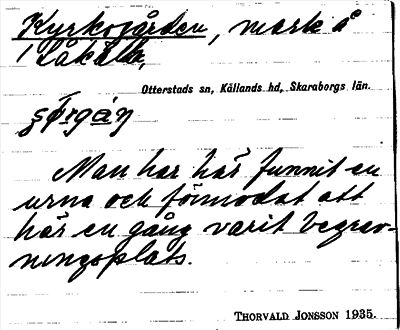 Kyrkogården, mark å
Låkälla,
Otterstads sn, Kållands hd, Skaraborgs län.
Man har här funnit en
urna och förmodat att
här en gång varit begrav-
ningsplats.
THORVALD JONSSON 1935.